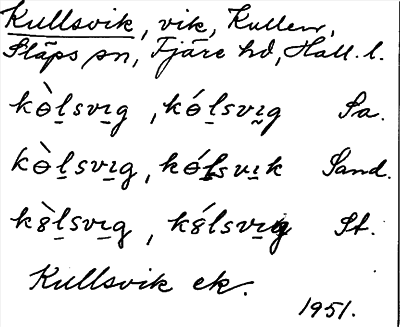 Kullsvik, vik, Kullen,
Släps sn, Fjäre hd, Hall. l.
kɵ̀l̲svı̲g, kɵ́l̲svı̲g Sa.
kɵ̀l̲svı̲g, kɵ́l̲svı̲k Sand.
k8̀l̲svı̲g, k8́lsvı̲g St.
Kullsvik ek.
1951.